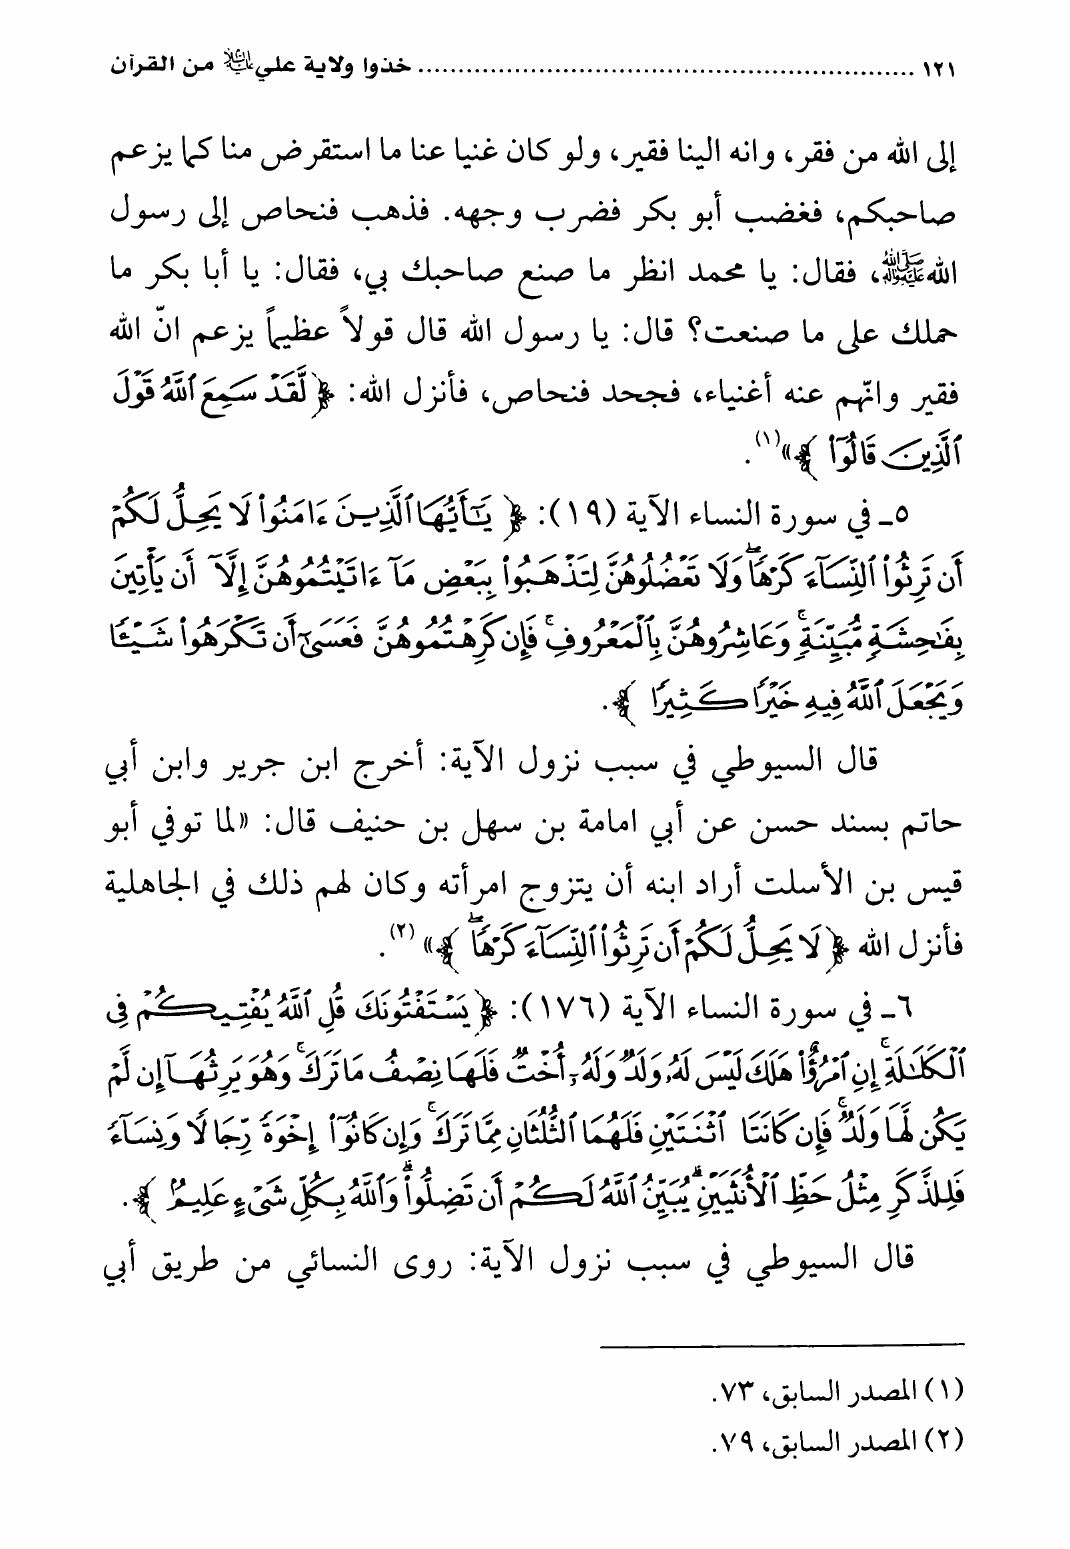 ١٢١ ........................................................ خذوا ولاية علي عليه السلام من القرآن
إلى الله من فقر، وانه الينا فقير، ولو كان غنيا عنا ما استقرض منا كما يزعم
صاحبكم، فغضب أبو بكر فضرب وجهه. فذهب فنحاص إلى رسول
الله ﷺ، فقال: يا محمد انظر ما صنع صاحبك بي، فقال: يا أبا بكر ما
حملك على ما صنعت؟ قال: يا رسول الله قال قولاً عظيماً يزعم انّ الله
فقير وانّهم عنه أغنياء، فجحد فنحاص، فأنزل الله: ﴿ لَّقَدْ سَمِعَ ٱللَّهُ قَوْلَ
ٱلَّذِينَ قَالُوٓا۟ ﴾»(١).
٥ـ في سورة النساء الآية (١٩): ﴿ يَـٰٓأَيُّهَا ٱلَّذِينَ ءَامَنُوا۟ لَا يَحِلُّ لَكُمْ
أَن تَرِثُوا۟ ٱلنِّسَآءَ كَرْهًا ۖ وَلَا تَعْضُلُوهُنَّ لِتَذْهَبُوا۟ بِبَعْضِ مَآ ءَاتَيْتُمُوهُنَّ إِلَّآ أَن يَأْتِينَ
بِفَـٰحِشَةٍ مُّبَيِّنَةٍ ۚ وَعَاشِرُوهُنَّ بِٱلْمَعْرُوفِ ۚ فَإِن كَرِهْتُمُوهُنَّ فَعَسَىٰٓ أَن تَكْرَهُوا۟ شَيْـًٔا
وَيَجْعَلَ ٱللَّهُ فِيهِ خَيْرًا كَثِيرًا ﴾.
قال السيوطي في سبب نزول الآية: أخرج ابن جرير وابن أبي
حاتم بسند حسن عن أبي امامة بن سهل بن حنيف قال: «لما توفي أبو
قيس بن الأسلت أراد ابنه أن يتزوج امرأته وكان لهم ذلك في الجاهلية
فأنزل الله ﴿ لَا يَحِلُّ لَكُمْ أَن تَرِثُوا۟ ٱلنِّسَآءَ كَرْهًا ۖ ﴾»(٢).
٦ـ في سورة النساء الآية (١٧٦): ﴿ يَسْتَفْتُونَكَ قُلِ ٱللَّهُ يُفْتِيكُمْ فِى
ٱلْكَلَـٰلَةِ ۚ إِنِ ٱمْرُؤٌا۟ هَلَكَ لَيْسَ لَهُۥ وَلَدٌ وَلَهُۥٓ أُخْتٌ فَلَهَا نِصْفُ مَا تَرَكَ ۚ وَهُوَ يَرِثُهَآ إِن لَّمْ
يَكُن لَّهَا وَلَدٌ ۚ فَإِن كَانَتَا ٱثْنَتَيْنِ فَلَهُمَا ٱلثُّلُثَانِ مِمَّا تَرَكَ ۚ وَإِن كَانُوٓا۟ إِخْوَةً رِّجَالًا وَنِسَآءً
فَلِلذَّكَرِ مِثْلُ حَظِّ ٱلْأُنثَيَيْنِ ۗ يُبَيِّنُ ٱللَّهُ لَكُمْ أَن تَضِلُّوا۟ ۗ وَٱللَّهُ بِكُلِّ شَىْءٍ عَلِيمٌۢ ﴾.
قال السيوطي في سبب نزول الآية: روى النسائي من طريق أبي
(١) المصدر السابق، ٧٣.
(٢) المصدر السابق، ٧٩.